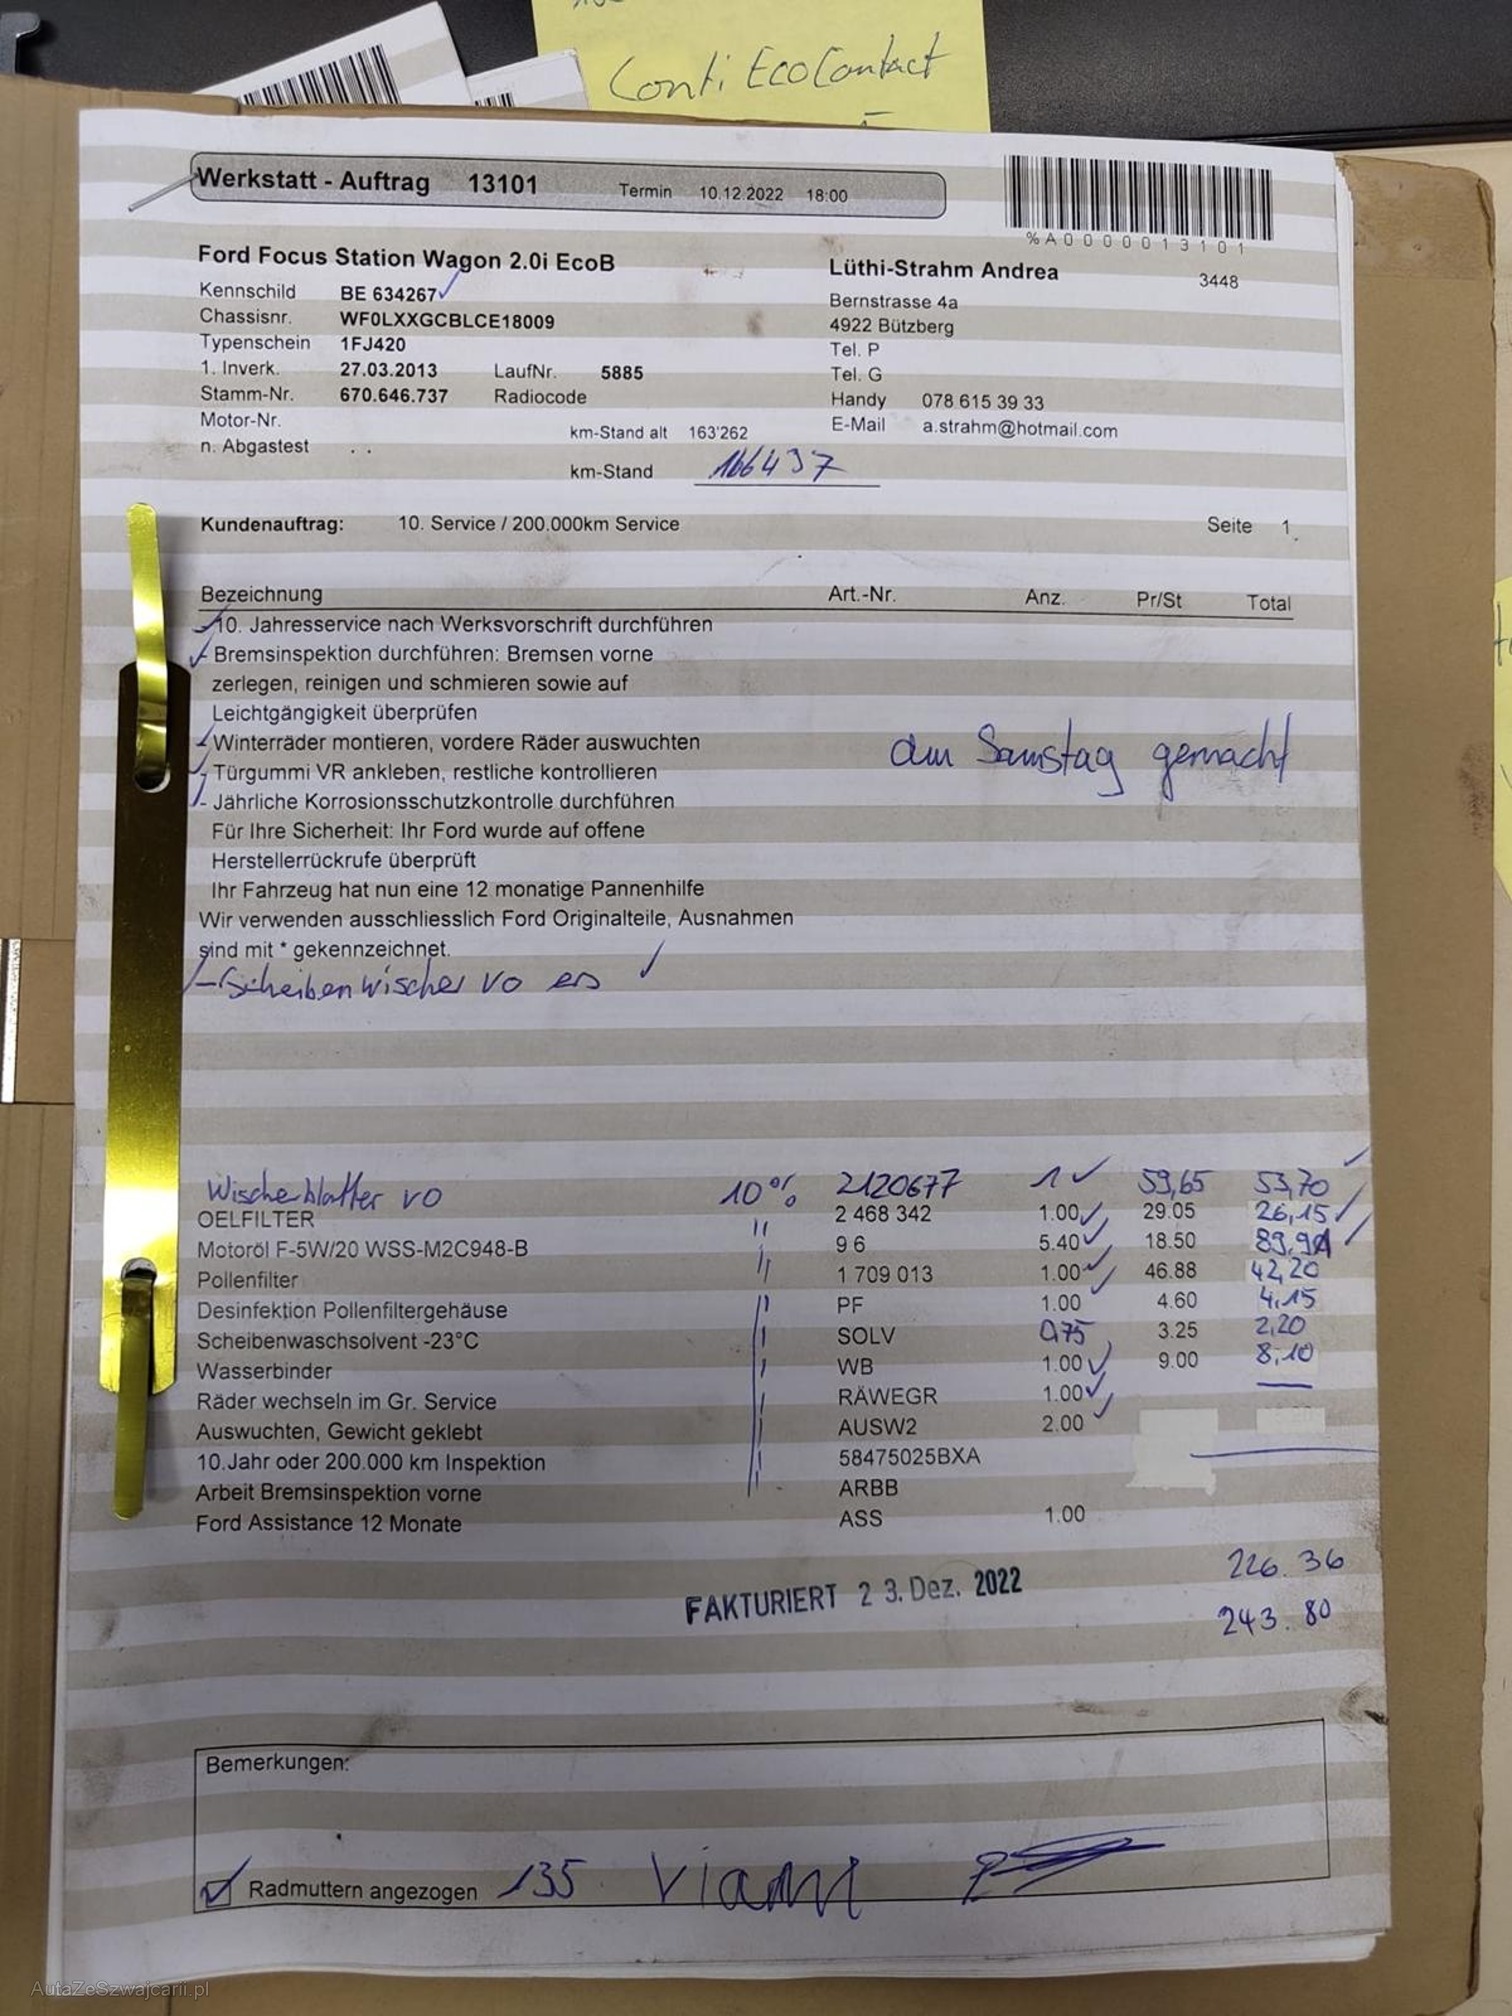 Conti EcoContact
Werkstatt - Auftrag 13101 Termin 10.12.2022 18:00
%A0000013101
Ford Focus Station Wagon 2.0i EcoB
Kennschild BE 634267
Chassisnr. WF0LXXGCBLCE18009
Typenschein 1FJ420
1. Inverk. 27.03.2013 LaufNr. 5885
Stamm-Nr. 670.646.737 Radiocode
Motor-Nr.
km-Stand alt 163'262
n. Abgastest . .
km-Stand 166437
Lüthi-Strahm Andrea 3448
Bernstrasse 4a
4922 Bützberg
Tel. P
Tel. G
Handy 078 615 39 33
E-Mail a.strahm@hotmail.com
Kundenauftrag: 10. Service / 200.000km Service Seite 1
Bezeichnung Art.-Nr. Anz. Pr/St Total
-10. Jahresservice nach Werksvorschrift durchführen
- Bremsinspektion durchführen: Bremsen vorne
zerlegen, reinigen und schmieren sowie auf
Leichtgängigkeit überprüfen
-Winterräder montieren, vordere Räder auswuchten
am Samstag gemacht
- Türgummi VR ankleben, restliche kontrollieren
- Jährliche Korrosionsschutzkontrolle durchführen
Für Ihre Sicherheit: Ihr Ford wurde auf offene
Herstellerrückrufe überprüft
Ihr Fahrzeug hat nun eine 12 monatige Pannenhilfe
Wir verwenden ausschliesslich Ford Originalteile, Ausnahmen
sind mit * gekennzeichnet.
- Scheibenwischer vo ers ✓
Wischerblatter vo 10% 2120677 1 ✓ 59,65 53,70
OELFILTER " 2 468 342 1.00 29.05 26,15
Motoröl F-5W/20 WSS-M2C948-B " 9 6 5.40 18.50 89,91
Pollenfilter " 1 709 013 1.00 46.88 42,20
Desinfektion Pollenfiltergehäuse PF 1.00 4.60 4,15
Scheibenwaschsolvent -23°C SOLV 0,75 3.25 2,20
Wasserbinder WB 1.00 9.00 8,10
Räder wechseln im Gr. Service RÄWEGR 1.00
Auswuchten, Gewicht geklebt AUSW2 2.00
10.Jahr oder 200.000 km Inspektion 58475025BXA
Arbeit Bremsinspektion vorne ARBB
Ford Assistance 12 Monate ASS 1.00
226.36
FAKTURIERT 2 3. Dez. 2022
243.80
Bemerkungen:
Radmuttern angezogen 135
AutaZeSzwajcarii.pl